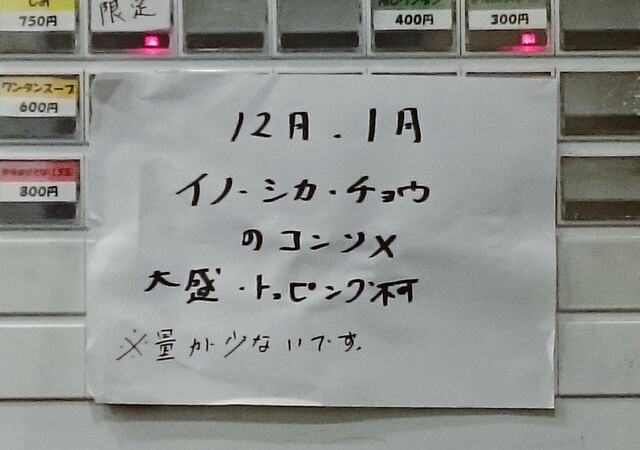 750円
限定
400円
300円
ワンタンスープ
600円
800円
12月.1月
イノ・シカ・チョウ
のコンソメ
大盛・トッピング不可
※量が少ないです。